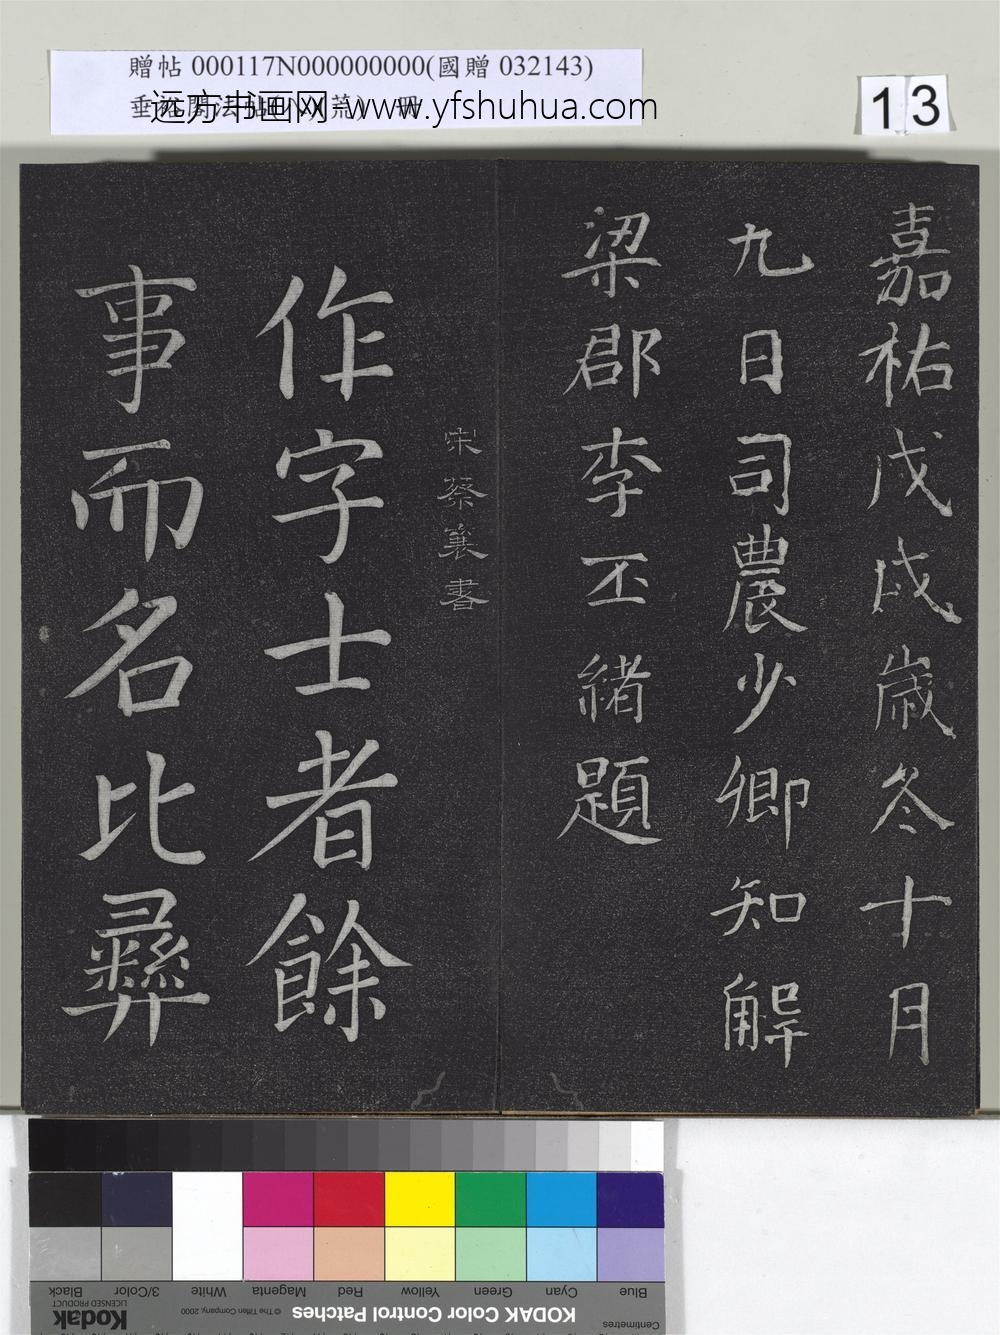 贈帖 000117N000000000(國贈 032143)
远方书画网-www.yfshuhua.com
13
嘉祐戊戌歲冬十月
九日司農少卿知解
梁郡李丕緒題
宋蔡襄書
作字士者餘
事而名比彞
Blue
Cyan
Green
Yellow
Red
Magenta
White
3/Color
Black
Centimetres
KODAK Color Control Patches
© The Tiffen Company, 2000
Kodak
LICENSED PRODUCT